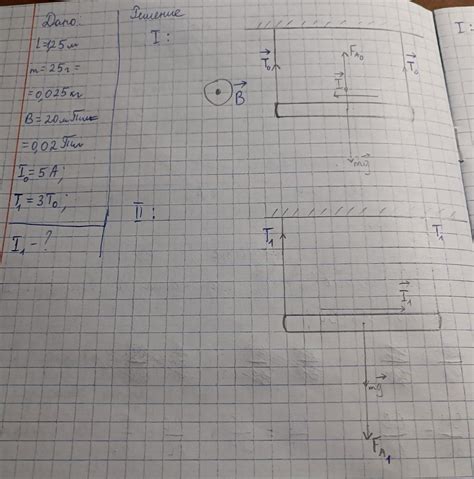 Дано:
l=1,25м
m=25г=
=0,025кг
B=20мТл
=0,02Тл
I₀=5А;
T₁=3T₀;
I₁-?
Решение
I:
T₀
F_A₀
T₀
I₀
B
mg
II:
T₁
T₁
I₁
mg
F_A₁
I: